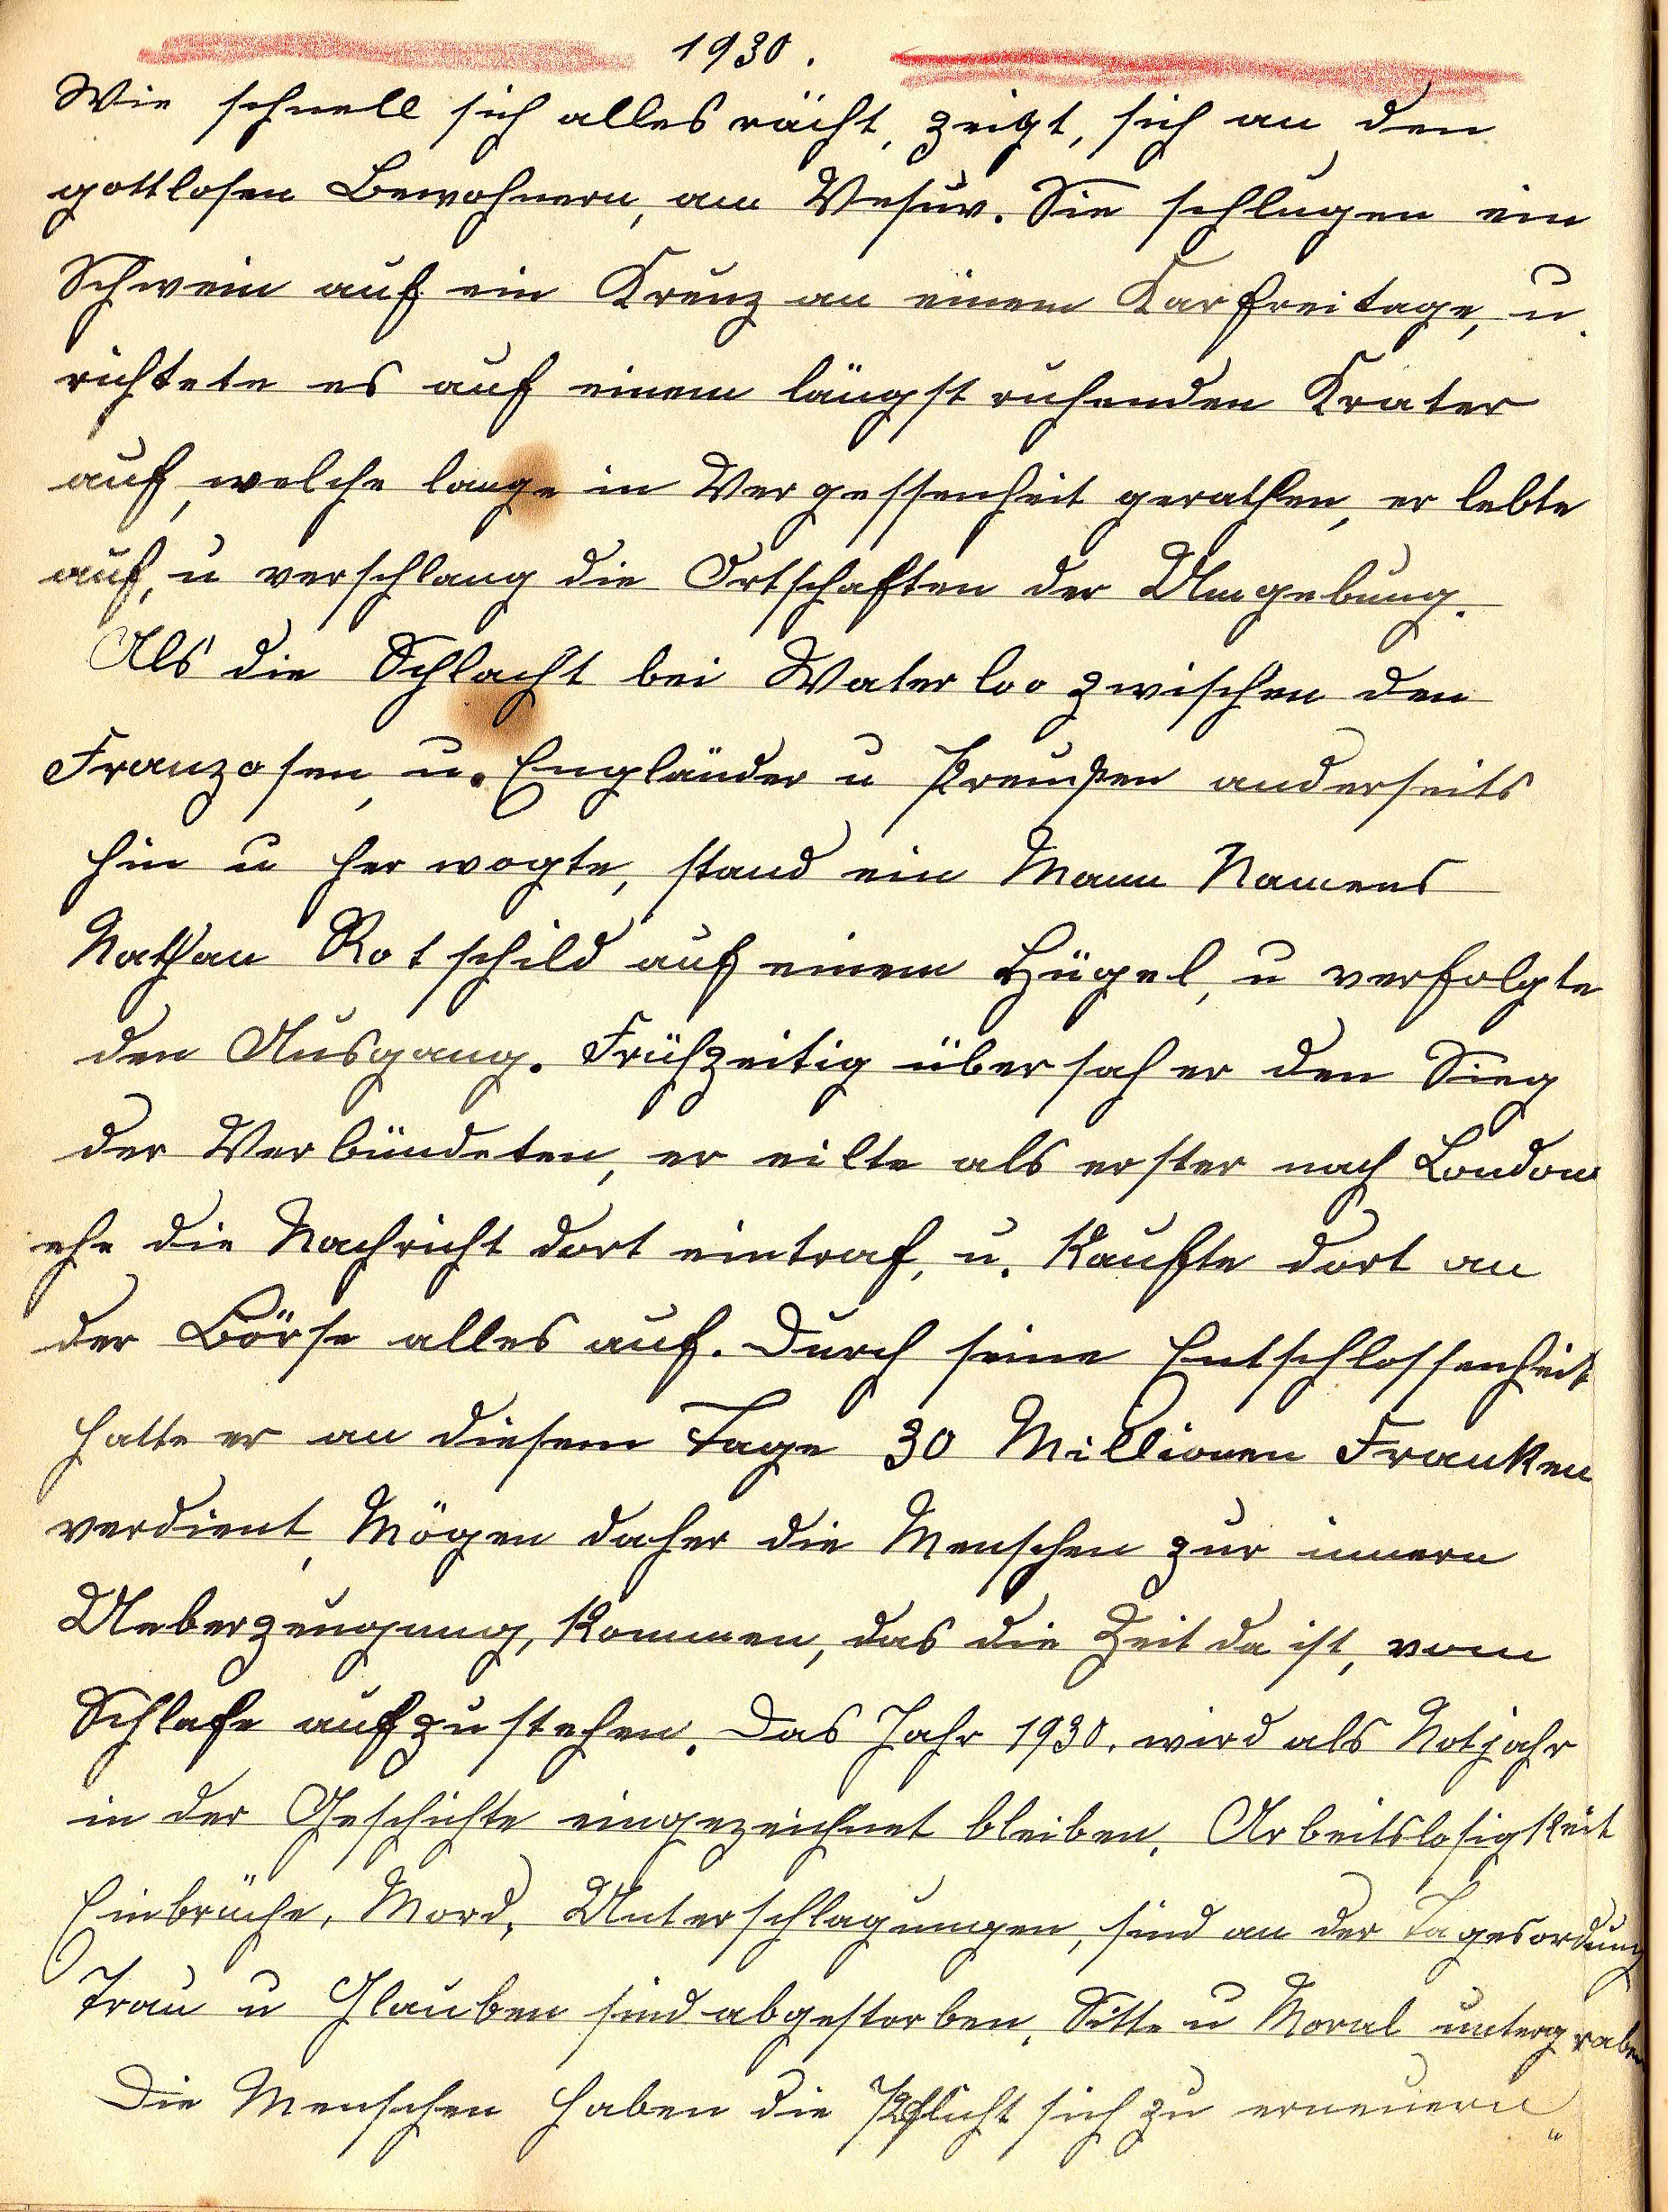 1930.
Wie schnell sich alles rächt, zeigt, sich an den
gottlosen Bewohnern, am Vesuv. Sie schlugen ein
Schwein auf ein Kreuz an einem Karfreitage, u.
richtete es auf einem längst ruhenden Krater
auf, welche lange in Vergessenheit gerathen, er lebte
auf, u verschlang die Ortschaften der Umgebung.
Als die Schlacht bei Waterloo zwischen den
Franzosen, u. Engländer u Preußen anderseits
hin u her wogte, stand ein Mann Namens
Nathan Rotschild auf einem Hügel, u verfolgte
den Ausgang. Frühzeitig übersah er den Sieg
der Verbündeten, er eilte als erster nach London
ehe die Nachricht dort eintraf, u. kaufte dort an
der Börse alles auf. Durch seine Entschlossenheit
hatte er an diesem Tage 30 Millionen Franken
verdient, Mögen daher die Menschen zur innern
Ueberzeugung, kommen, das die Zeit da ist, vom
Schlafe aufzustehen. Das Jahr 1930. wird als Notjahr
in der Geschichte eingezeichnet bleiben. Arbeitslosigkeit
Einbrüche, Mord, Unterschlagungen, sind an der Tagesordung
Trau u Glauben sind abgestorben. Sitte u Moral untergraben
Die Menschen haben die Pflicht sich zu erneuern"